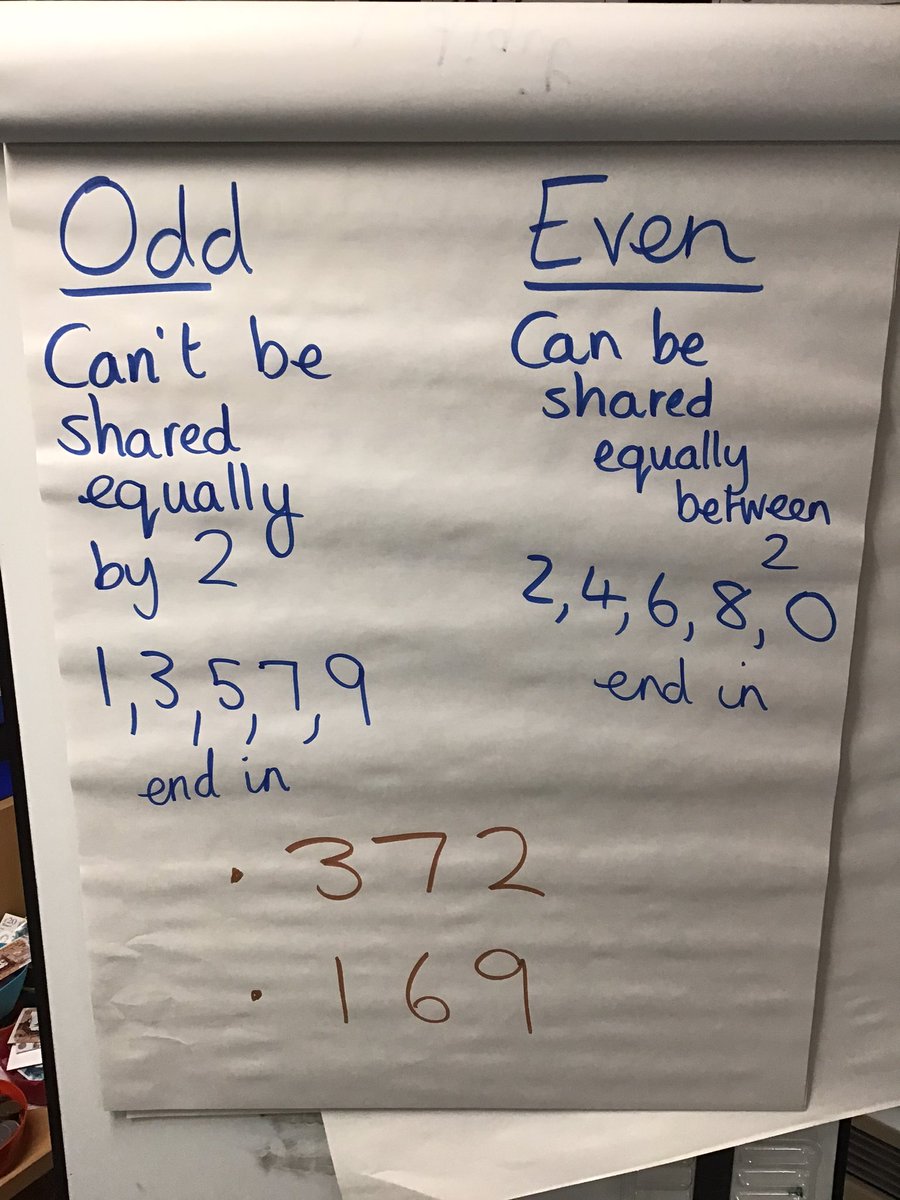 Odd
Can't be
shared
equally
by 2
1,3,5,7,9
end in
Even
Can be
shared
equally
between
2
2,4,6,8,0
end in
. 372
. 169